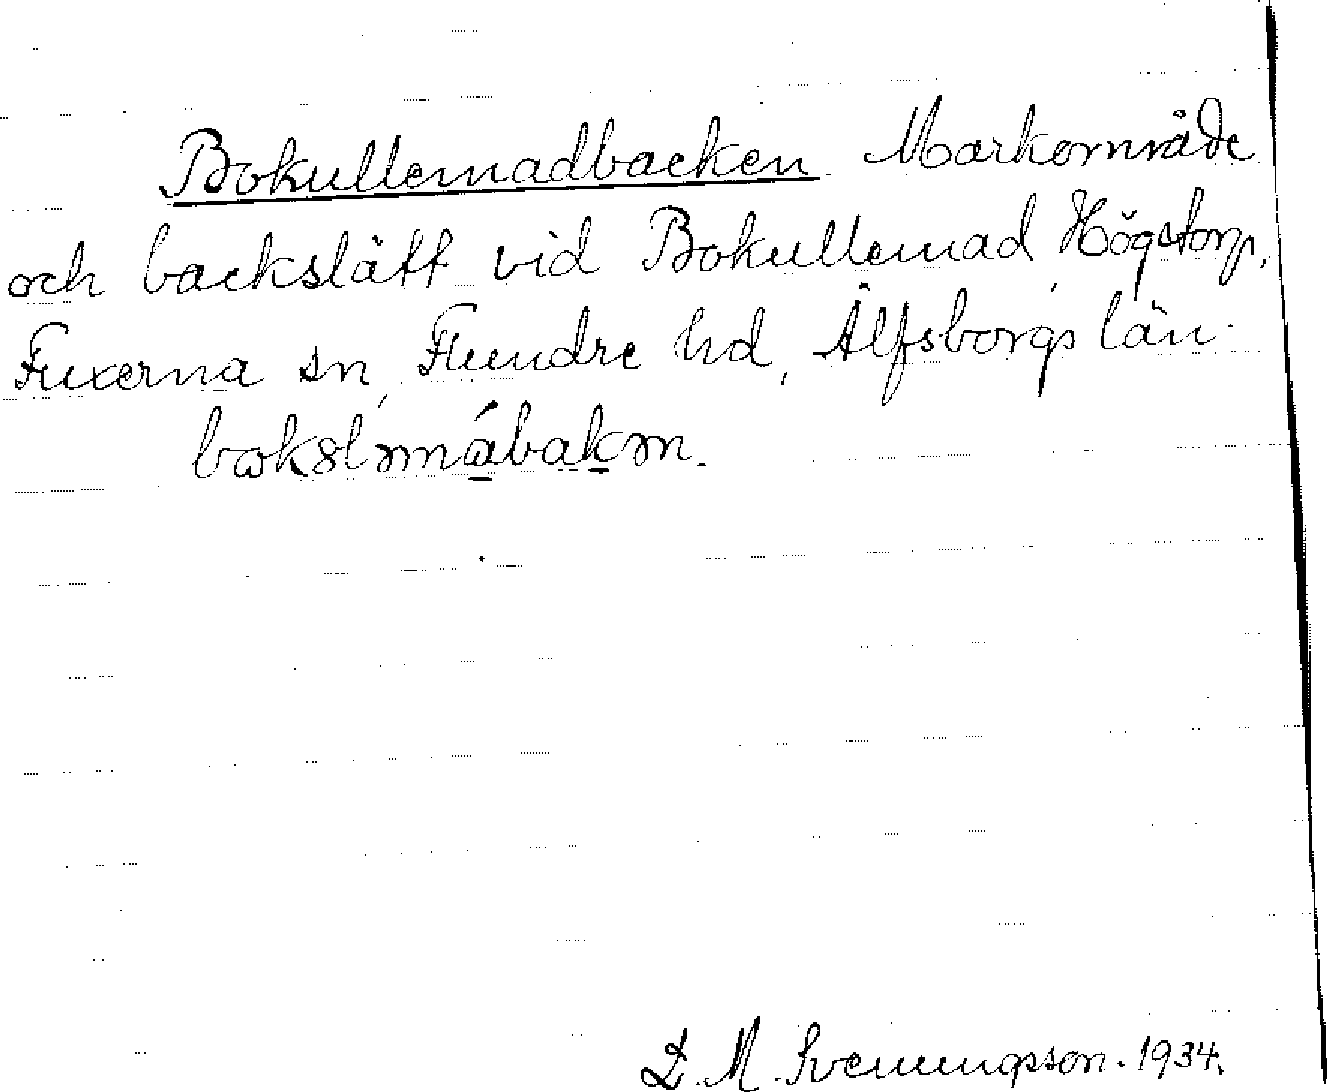 Bokullemadbacken Markområde
och backslätt vid Bokullemad, Högstorp,
Fuxerna sn, Flundre hd, Älfsborgs län.
L. M. Svenungsson. 1934.